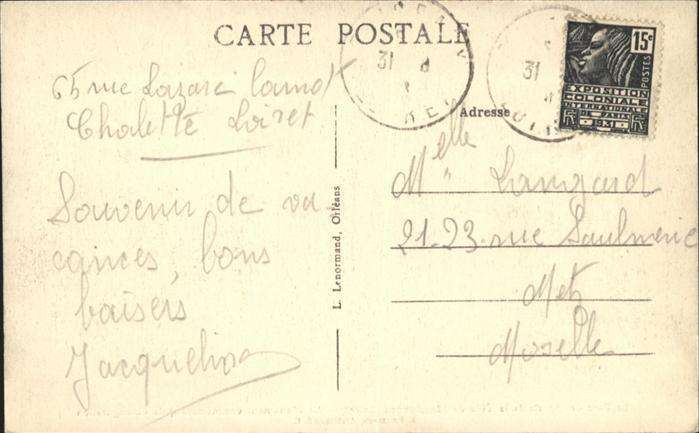 CARTE POSTALE
65 rue Lazare Carnot
Chalette Loiret
Souvenir de va-
cances, bons
baisers
Jacqueline
L. Lenormand, Orléans
31
31
15c
POSTES
EXPOSITION
COLONIALE
INTERNATIONALE
DE PARIS
1931
Adresse
Melle Langard
21-23 rue Saulnerie
Metz
Moselle